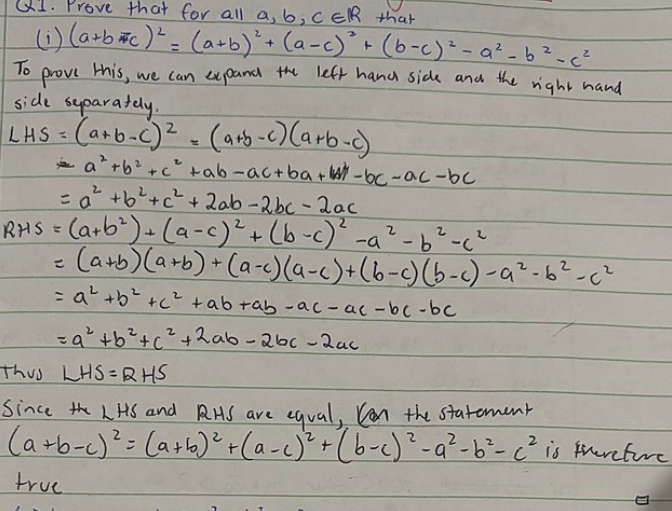 Q1. Prove that for all a, b, c ∈ ℝ that
(i) (a+b-c)² = (a+b)² + (a-c)² + (b-c)² - a² - b² - c²
To prove this, we can expand the left hand side and the right hand
side separately.
LHS = (a+b-c)² = (a+b-c)(a+b-c)
= a²+b²+c²+ab-ac+ba+ -bc-ac-bc
= a²+b²+c²+2ab-2bc-2ac
RHS = (a+b²)+(a-c)²+(b-c)²-a²-b²-c²
= (a+b)(a+b)+(a-c)(a-c)+(b-c)(b-c)-a²-b²-c²
= a²+b²+c²+ab+ab-ac-ac-bc-bc
= a²+b²+c²+2ab-2bc-2ac
Thus LHS=RHS
Since the LHS and RHS are equal, the statement
(a+b-c)² = (a+b)²+(a-c)²+(b-c)²-a²-b²-c² is therefore
true
□